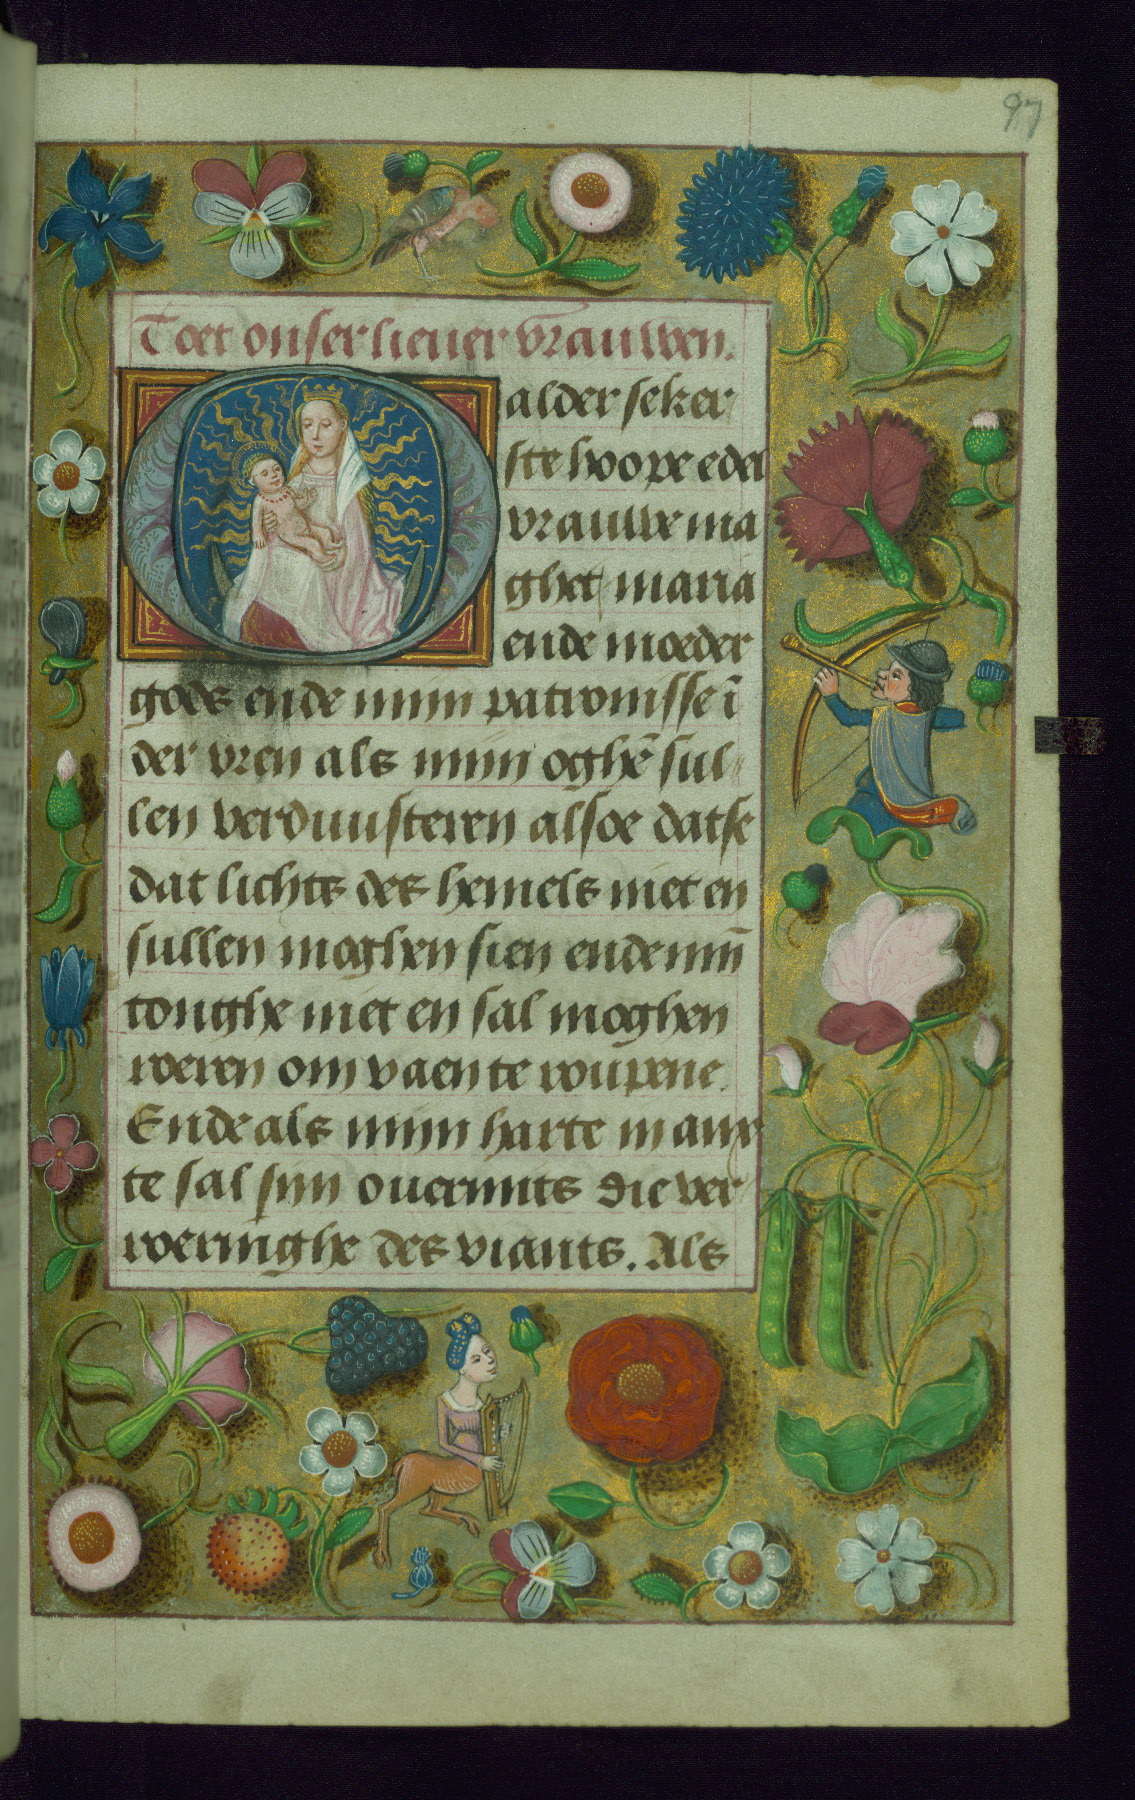 97
Toet onser lieuer vrauwen.
O alder seker
ste hoope edel
vrauwe ma
ghet maria
ende moeder
gods ende mijn patronisse ī
der vren als mijn oghē sul
len verduusteren alsoe datse
dat lichts des hemels niet en
sullen moghen sien ende mijn
tonghe niet en sal moghen
roeren om v aen te roupene.
Ende als mijn harte in anx
te sal sijn ouermits die ver
weringhe des viants. Als